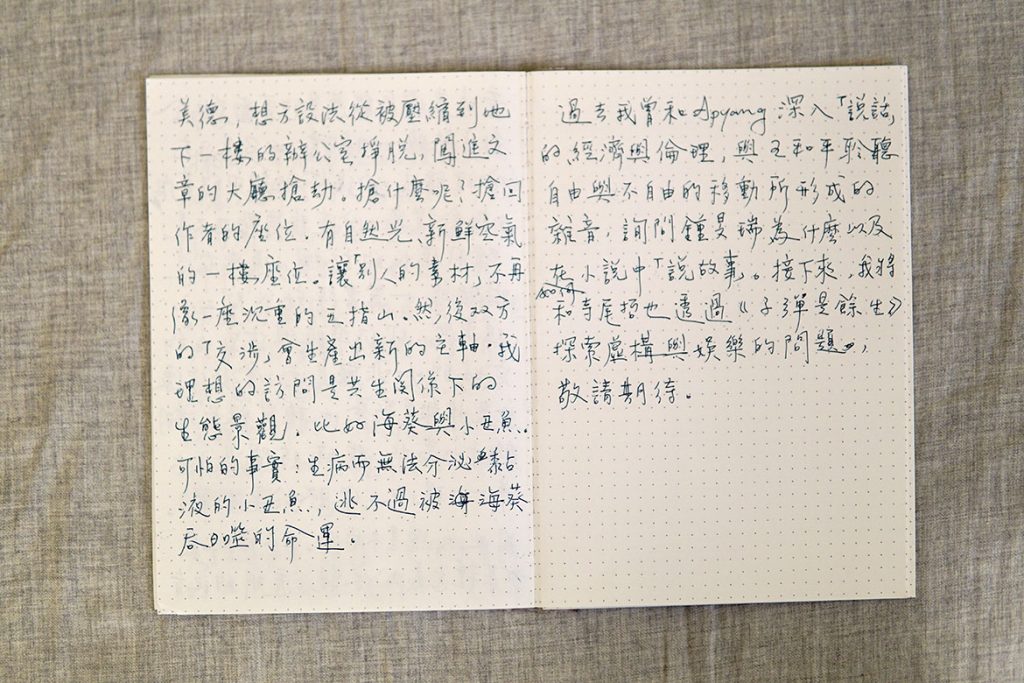 美德，想方設法從被壓縮到地
下一樓的辦公室掙脫，闖進文
章的大廳搶劫。搶什麼呢？搶回
作者的座位，有自然光、新鮮空氣
的一樓座位。讓「別人的素材」不再
像一座沉重的五指山。然後双方
的「交涉」會生產出新的主軸。我
理想的訪問是共生関係下的
生態景觀，比如海葵與小丑魚。
可怕的事實：生病而無法分泌黏
液的小丑魚，逃不過被海海葵
吞噬的命運。
過去我曾和Apyang深入「說話」
的經濟與倫理，與王和平聆聽
自由與不自由的移動所形成的
雜音，詢問鍾旻瑞為什麼以及
如何
在小說中「說故事」。接下來，我將
和寺尾哲也透過《子彈是餘生》
探索虛構與娛樂的問題，
敬請期待。